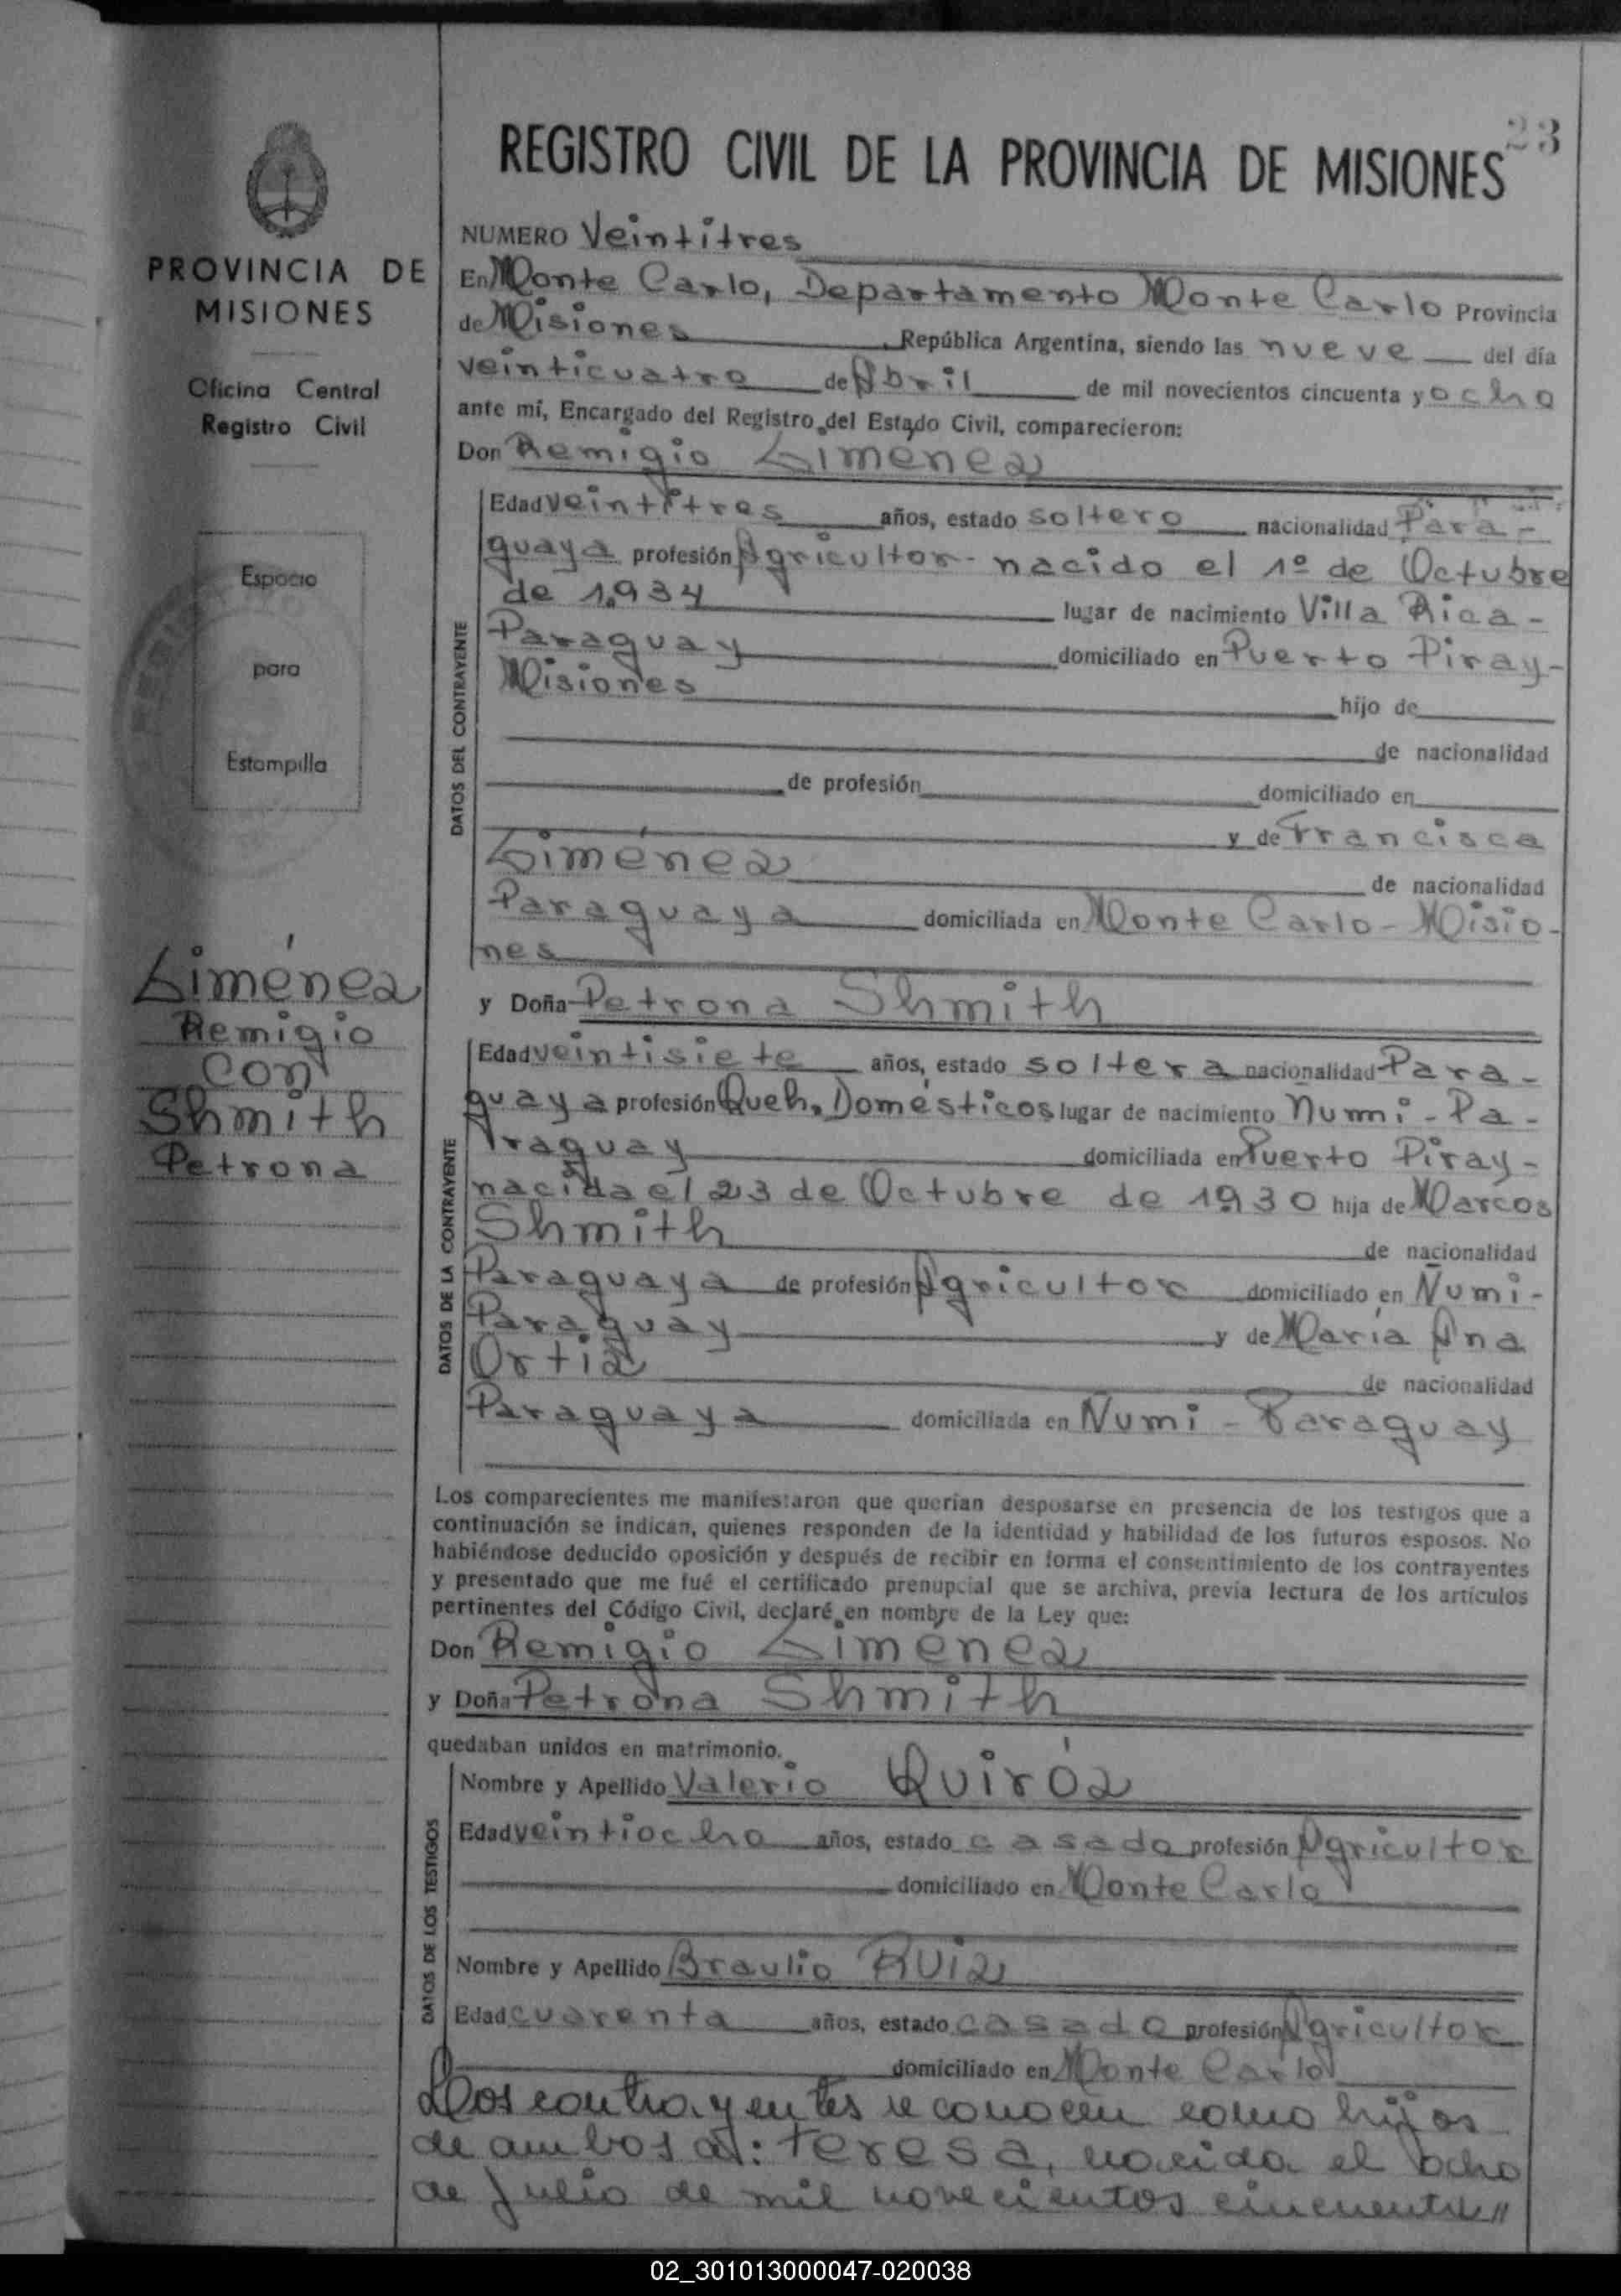 23
REGISTRO CIVIL DE LA PROVINCIA DE MISIONES
PROVINCIA DE
MISIONES
Oficina Central
Registro Civil
Espacio
para
Estampilla
Giménez
Remigio
Con
Shmith
Petrona
NUMERO Veintitres
En Monte Carlo, Departamento Monte Carlo Provincia
de Misiones, República Argentina, siendo las nueve del día
veinticuatro de Abril de mil novecientos cincuenta y ocho
ante mí, Encargado del Registro del Estado Civil, comparecieron:
Don Remigio Gimenez
DATOS DEL CONTRAYENTE
Edad veintitres años, estado soltero nacionalidad Para-
guaya profesión Agricultor- nacido el 1º de Octubre
de 1.934 lugar de nacimiento Villa Rica-
Paraguay domiciliado en Puerto Piray-
Misiones hijo de
de nacionalidad
de profesión domiciliado en
y de Francisca
Giménez de nacionalidad
Paraguaya domiciliada en Monte Carlo- Misio-
nes
y Doña Petrona Shmith
DATOS DE LA CONTRAYENTE
Edad veintisiete años, estado soltera nacionalidad Para-
guaya profesión Queh. Domésticos lugar de nacimiento Ñumi- Pa-
raguay domiciliada en Puerto Piray-
nacida el 23 de Octubre de 1930 hija de Marcos
Shmith de nacionalidad
Paraguaya de profesión Agricultor domiciliado en Ñumi-
Paraguay y de María Ana
Ortiz de nacionalidad
Paraguaya domiciliada en Ñumi - Paraguay
Los comparecientes me manifestaron que querían desposarse en presencia de los testigos que a
continuación se indican, quienes responden de la identidad y habilidad de los futuros esposos. No
habiéndose deducido oposición y después de recibir en forma el consentimiento de los contrayentes
y presentado que me fué el certificado prenupcial que se archiva, previa lectura de los artículos
pertinentes del Código Civil, declaré en nombre de la Ley que:
Don Remigio Gimenez
y Doña Petrona Shmith
quedaban unidos en matrimonio.
DATOS DE LOS TESTIGOS
Nombre y Apellido Valerio Quiróz
Edad veintiocho años, estado casado profesión Agricultor
domiciliado en Monte Carlo
Nombre y Apellido Braulio Ruiz
Edad cuarenta años, estado casado profesión Agricultor
domiciliado en Monte Carlo
Los contrayentes reconocen como hijos
de ambos a: Teresa, nacida el ocho
de Julio de mil novecientos cincuenta
02_301013000047-020038